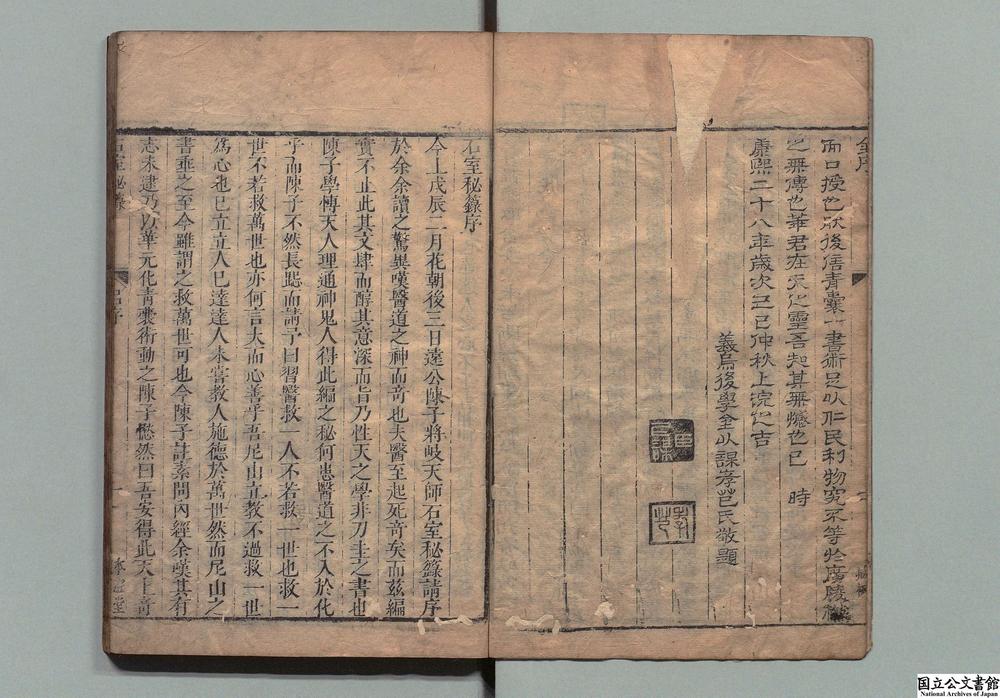 金序
而口授也然後信青囊一書術足以仁民利物究不等於廣陵
之無傳也華君在天之靈吾知其無憾也已 時
康熙二十八年歲次己巳仲秋上浣之吉
義烏後學金以謀孝芑氏敬題
石室秘籙序
今上戊辰二月花朝後三日遠公陳子將岐天師石室秘籙請序
於余余讀之驚異嘆醫道之神而奇也夫醫至起死奇矣而茲編
實不止此其文肆而醇其意深而旨乃性天之學非刀圭之書也
陳子學博天人理通神鬼人得此編之秘何患醫道之不入於化
乎而陳子不然長跽而請予曰習醫救一人不若救一世也救一
世不若救萬世也亦何言大而心善乎吾尼山立教不過救一世
爲心也巳立立人巳達達人未嘗教人施德於萬世然而尼山之
書垂之至今雖謂之救萬世可也今陳子註素問內經余嘆其有
志未逮乃以華元化青囊術動之陳子愀然曰吾安得此天上奇
石室秘籙
呂序
一
本澄堂
国立公文書館
National Archives of Japan